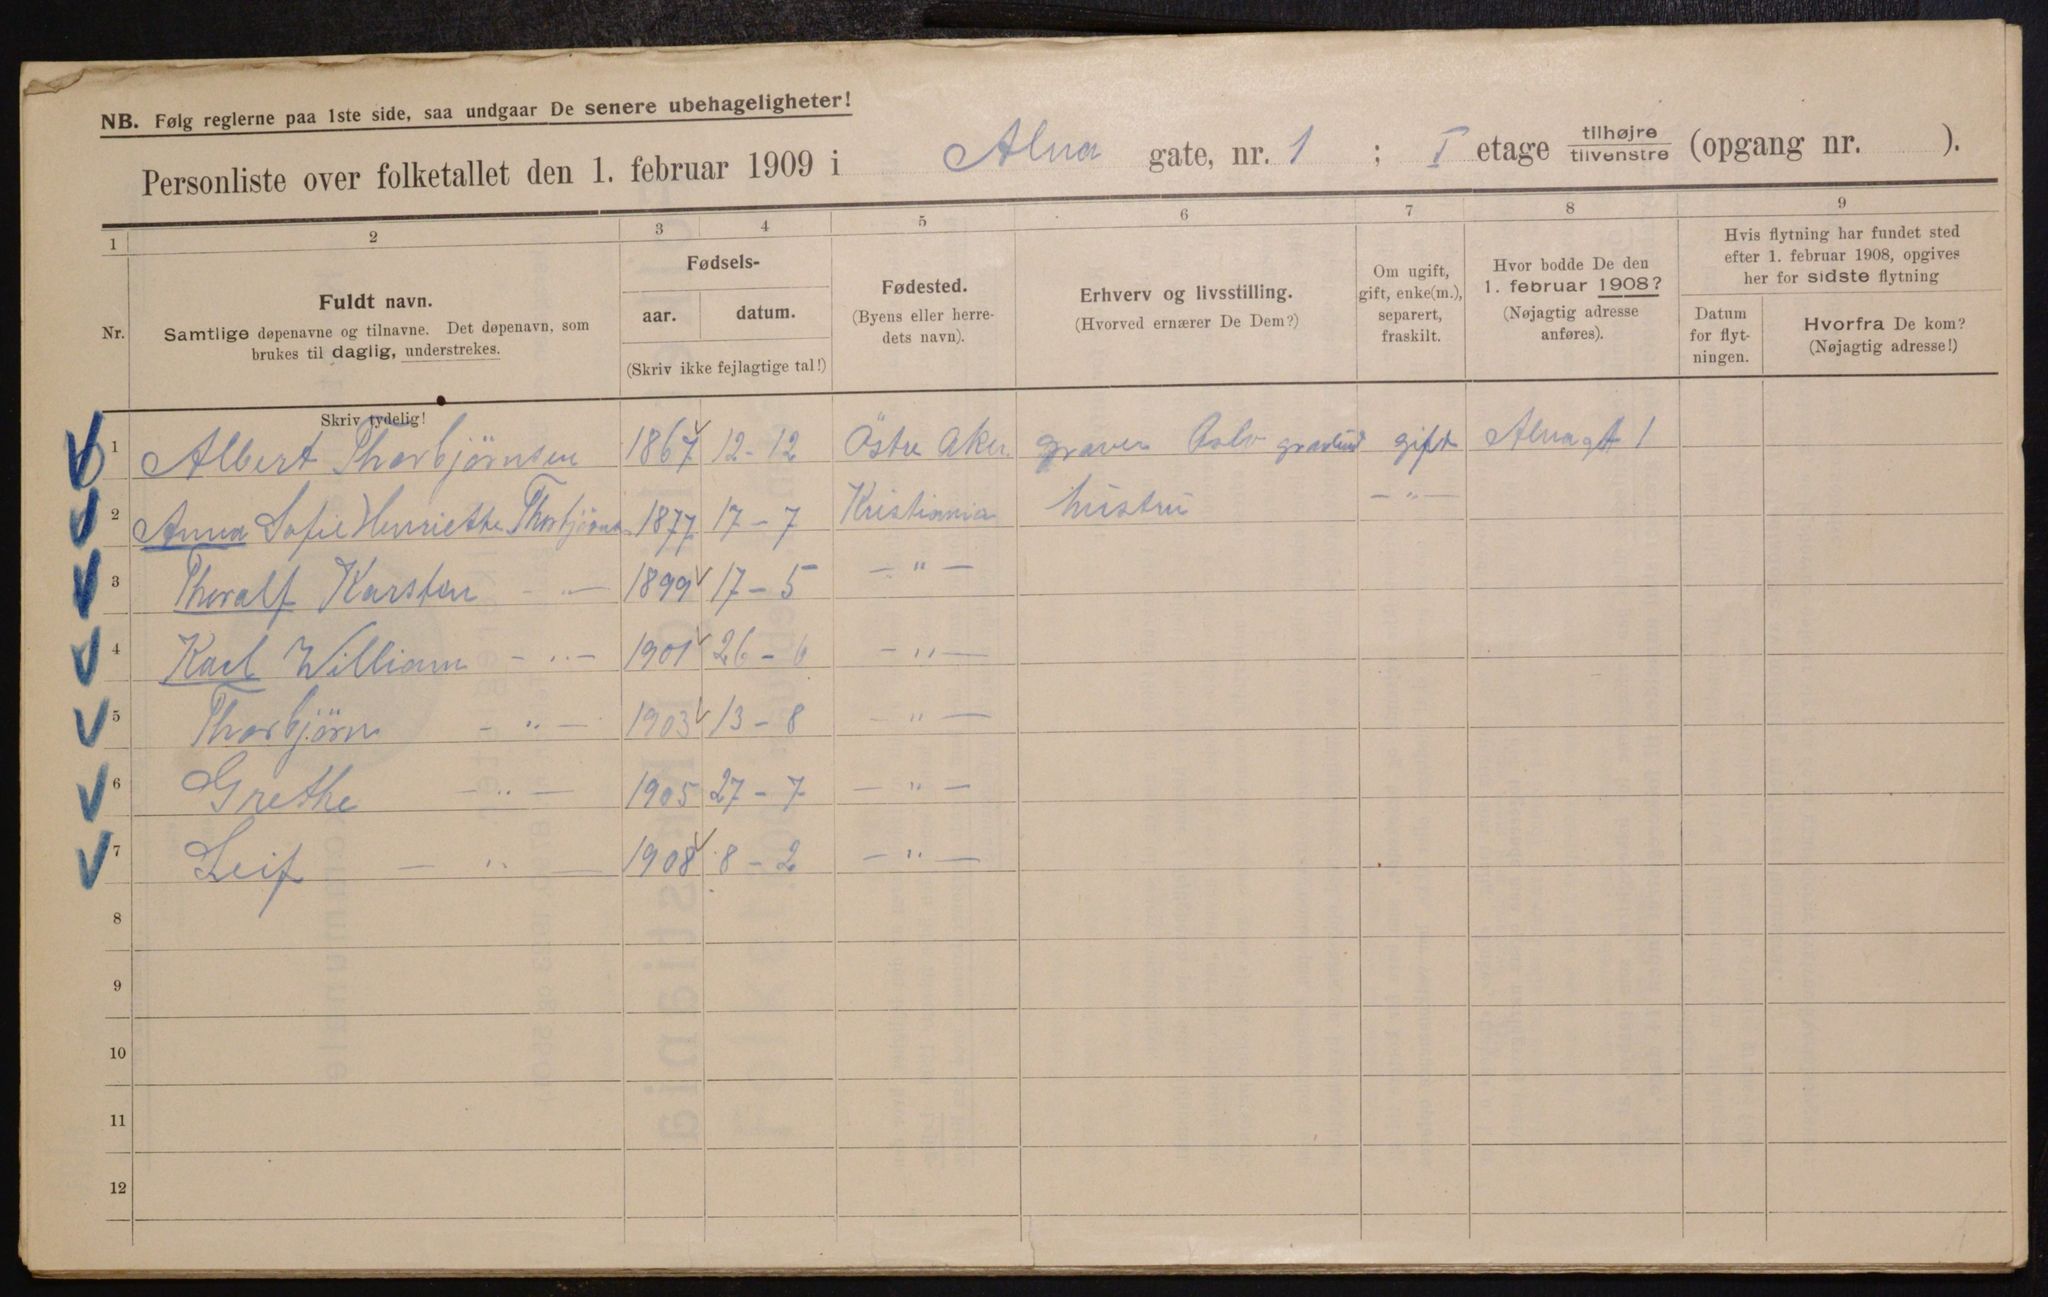 NB. Følg reglerne paa 1ste side, saa undgaar De senere ubehageligheter!
Personliste over folketallet den 1. februar 1909 i Alna gate, nr. 1 ; I etage tilhøjre / tilvenstre (opgang nr. ).
1 2 3 4 5 6 7 8 9
Nr.
Fuldt navn.
Samtlige døpenavne og tilnavne. Det døpenavn, som
brukes til daglig, understrekes.
Skriv tydelig!
Fødsels-
aar. datum.
(Skriv ikke fejlagtige tal!)
Fødested.
(Byens eller herre-
dets navn).
Erhverv og livsstilling.
(Hvorved ernærer De Dem?)
Om ugift,
gift, enke(m.),
separert,
fraskilt.
Hvor bodde De den
1. februar 1908?
(Nøjagtig adresse
anføres).
Hvis flytning har fundet sted
efter 1. februar 1908, opgives
her for sidste flytning
Datum
for flyt-
ningen.
Hvorfra De kom?
(Nøjagtig adresse!)
1 Albert Thorbjörnsen 1867 12-12 Östre Aker graver Oslo gravlund gift Alnagt 1
2 Anna Sofie Henriethe Thorbjörns 1877 17-7 Kristiania hustru -"-
3 Thoralf Karsten -"- 1899 17-5 -"-
4 Karl William -"- 1901 26-6 -"-
5 Thorbjörn -"- 1903 13-8 -"-
6 Grethe -"- 1905 27-7 -"-
7 Leif -"- 1908 8-2 -"-
8
9
10
11
12